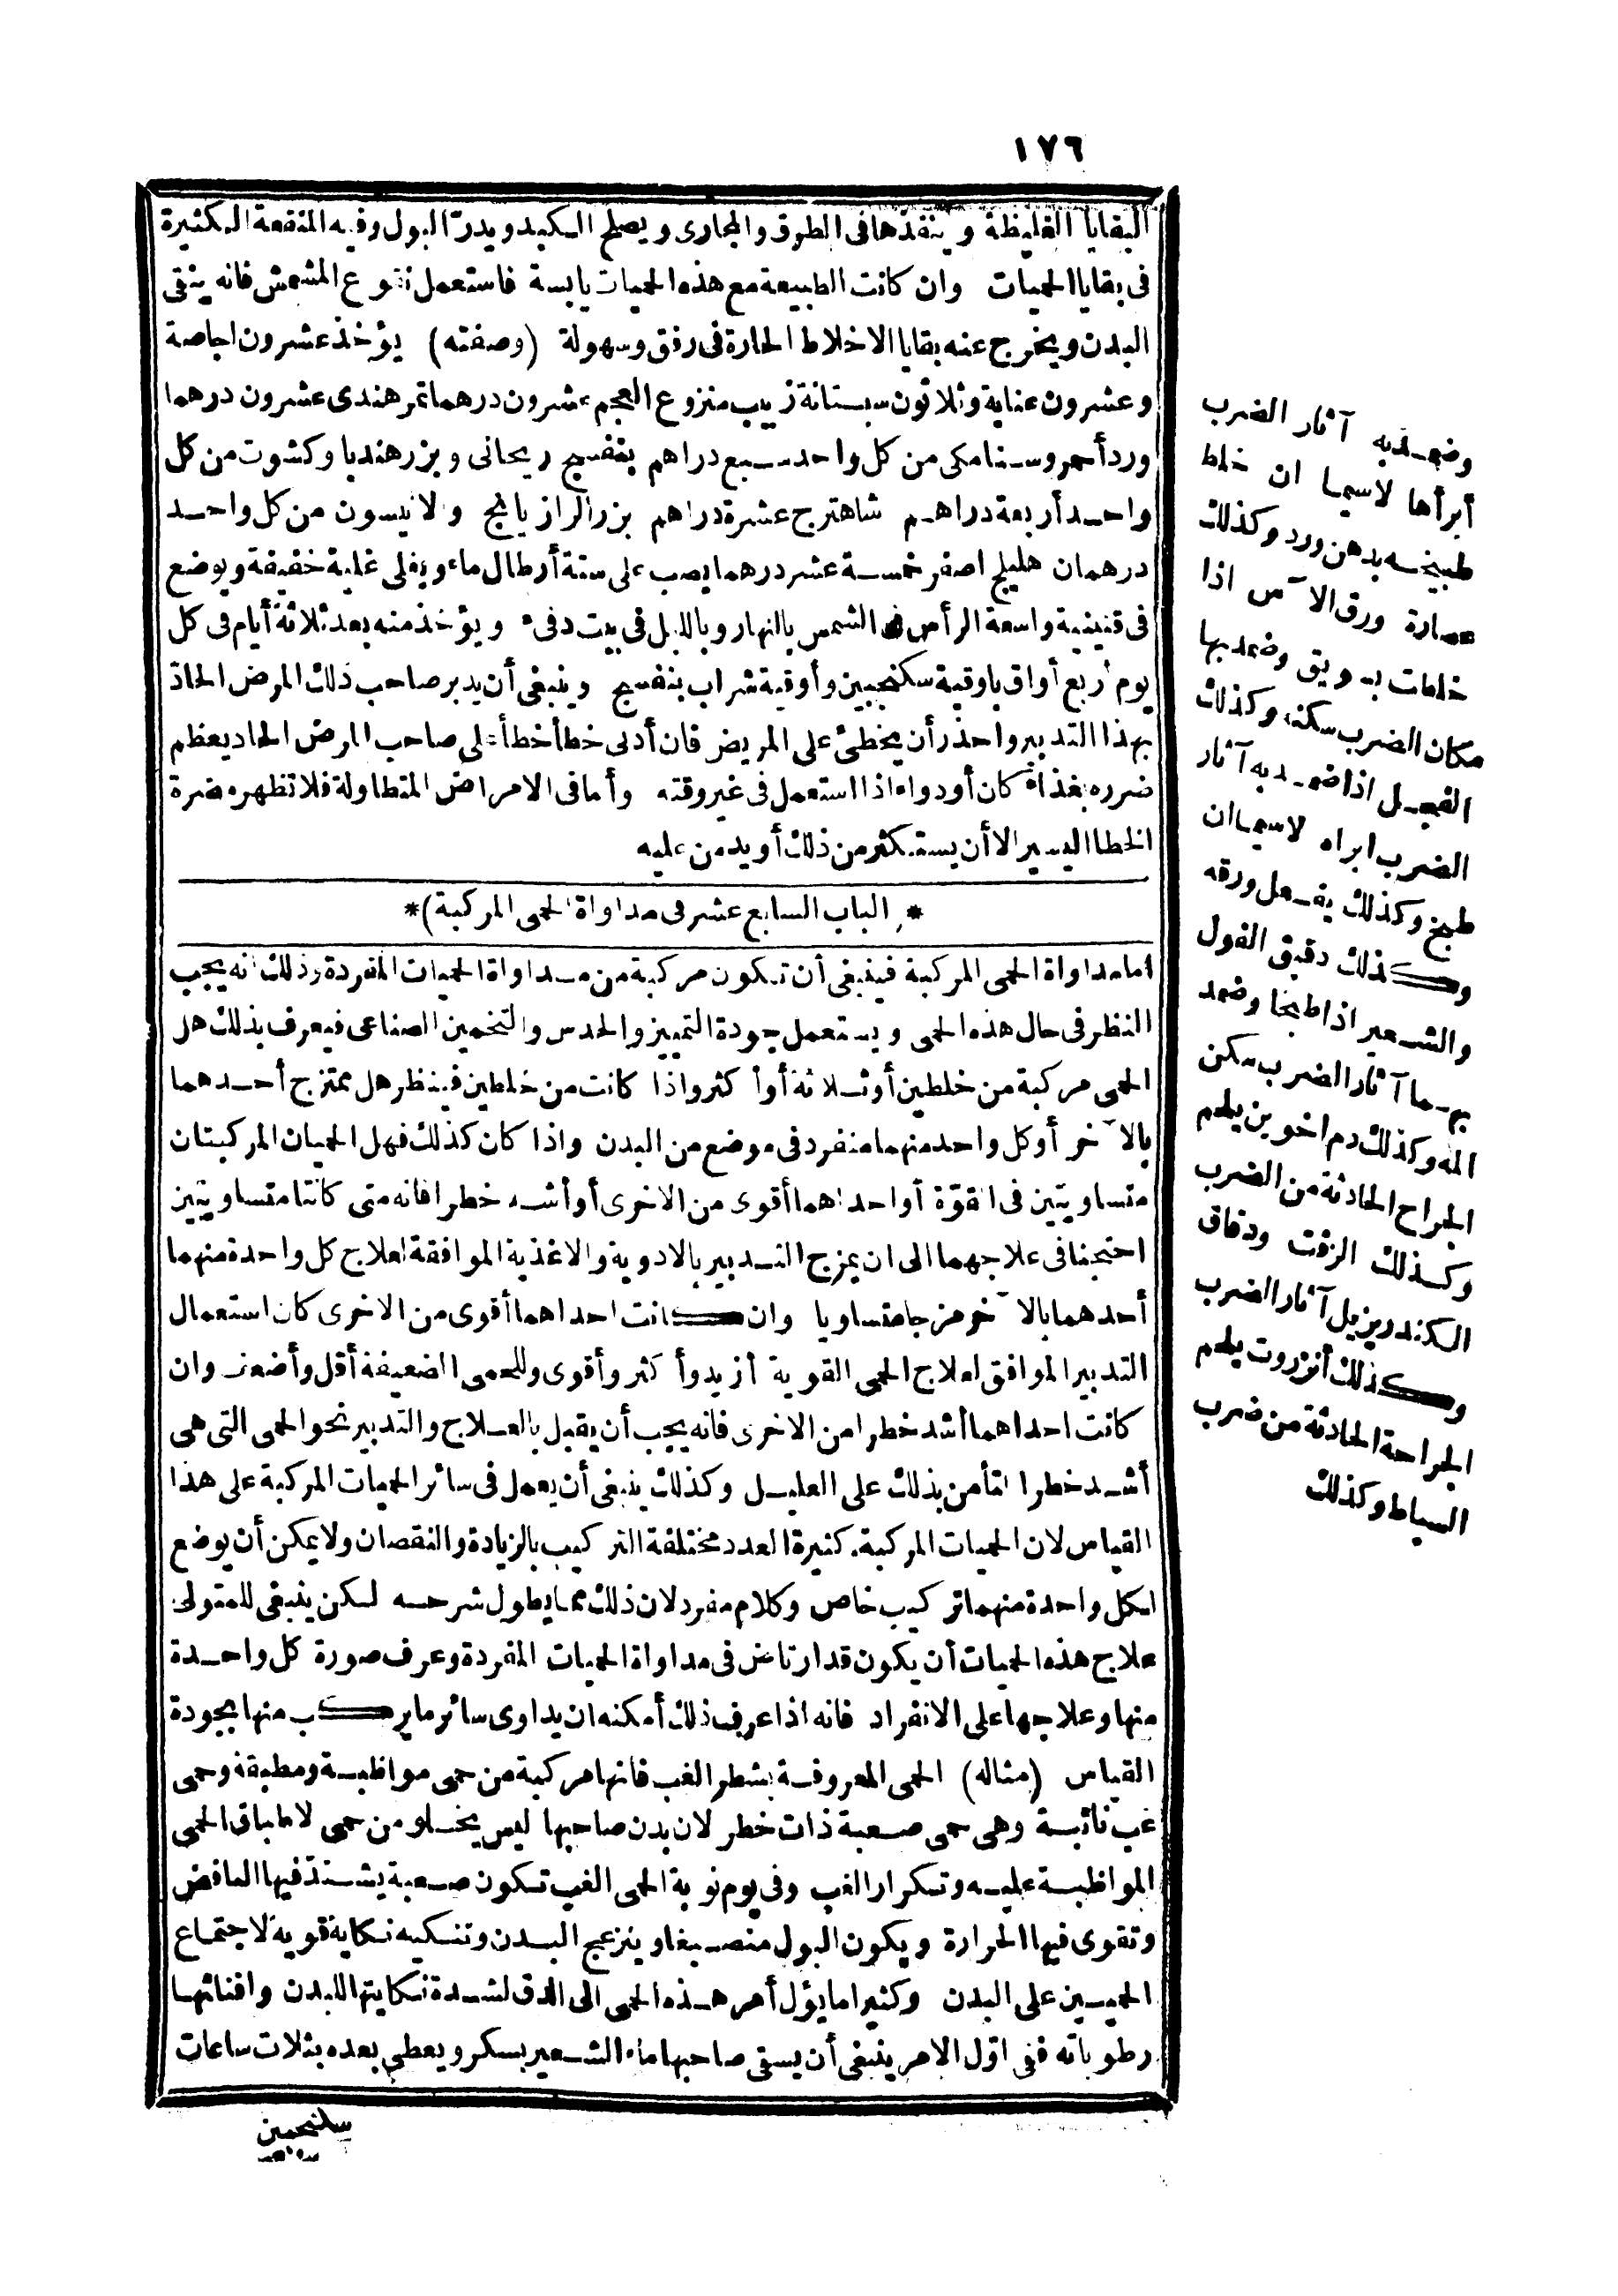 ١٧٦
البقايا الغليظة وينفذها فى الطرق والمجارى ويصلح الكبد ويدرّ البول وفيه المنفعة الكثيرة
فى بقايا الحميات وان كانت الطبيعة مع هذه الحميات يابسة فاستعمل نقوع المشمش فانه ينقى
البدن ويخرج عنه بقايا الاخلاط الحارة فى رفق وسهولة (وصفته) يؤخذ عشرون اجاصة
وعشرون عنابة وثلاثون سبستانة زبيب منزوع العجم عشرون درهما تمر هندى عشرون درهما
ورد أحمر وسنا مكى من كل واحد سبع دراهم بنفسج ريحانى وبزر هندبا وكشوت من كل
واحد أربعة دراهم شاهترج عشرة دراهم بزر الرازيانج والانيسون من كل واحد
درهمان هليلج اصفر خمسة عشر درهما يصب على ستة أرطال ماء ويغلى غلية خفيفة ويوضع
فى قنينية واسعة الرأس فى الشمس بالنهار وبالليل فى بيت دفىء ويؤخذ منه بعد ثلاثة أيام فى كل
يوم أربع أواق باوقية سكنجبين وأوقية شراب بنفسج وينبغى أن يدبر صاحب ذلك المرض الحادّ
بهذا التدبير واحذر أن يخطئ على المريض فان أدنى خطأ أخطأ على صاحب المرض الحاد يعظم
ضرره بغذاء كان أو دواء اذا استعمل فى غير وقته وأما فى الامراض المتطاولة فلا تظهر مضرة
الخطا اليسير الا أن يستكثر من ذلك أو يدمن عليه
*(الباب السابع عشر فى مداواة الحمى المركبة)*
أما مداواة الحمى المركبة فينبغى أن تكون مركبة من مداواة الحميات المفردة وذلك انه يجب
النظر فى حال هذه الحمى ويستعمل جودة التمييز والحدس والتخمين الصناعى فيعرف بذلك هل
الحمى مركبة من خلطين أو ثلاثة أو أكثر واذا كانت من خلطين فينظر هل ممتزج أحدهما
بالآخر أو كل واحد منهما منفرد فى موضع من البدن واذا كان كذلك فهل الحميان المركبتان
متساويتين فى القوّة أو احداهما أقوى من الاخرى أو أشد خطرا فانه متى كانتا متساويتين
احتجنا فى علاجهما الى ان يمزج التدبير بالادوية والاغذية الموافقة لعلاج كل واحدة منهما
أحدهما بالآخر مزجا متساويا وان كانت احداهما أقوى من الاخرى كان استعمال
التدبير الموافق لعلاج الحمى القوية أزيد وأكثر وأقوى وللحمى الضعيفة أقل وأضعف وان
كانت احداهما أشد خطرا من الاخرى فانه يجب أن يقبل بالعلاج والتدبير نحو الحمى التى هى
أشد خطرا لتأمن بذلك على العليل وكذلك ينبغى أن يعمل فى سائر الحميات المركبة على هذا
القياس لان الحميات المركبة كثيرة العدد مختلفة التركيب بالزيادة والنقصان ولا يمكن أن يوضع
لكل واحدة منهما تركيب خاص وكلام مفرد لان ذلك مما يطول شرحه لكن ينبغى للمتولى
علاج هذه الحميات أن يكون قد ارتاض فى مداواة الحميات المفردة وعرف صورة كل واحدة
منها وعلاجها على الانفراد فانه اذا عرف ذلك أمكنه ان يداوى سائر ما يركب منها بجودة
القياس (مثاله) الحمى المعروفة بشطر الغب فانها مركبة من حمى مواظبة ومطبقة وحمى
غب نائبة وهى حمى صعبة ذات خطر لان بدن صاحبها ليس يخلو من حمى لاطباق الحمى
المواظبة عليه وتكرار الغب وفى يوم نوبة الحمى الغب تكون صعبة يشتدّ فيها النافض
وتقوى فيها الحرارة ويكون البول منصبغا وينزعج البدن وتنكيه نكاية قوية لاجتماع
الحميين على البدن وكثيرا ما يؤل أمر هذه الحمى الى الدق لشدة نكايتها للبدن وافنائها
رطوباته ففى اوّل الامر ينبغى أن يسقى صاحبها ماء الشعير بسكر ويعطى بعده بثلاث ساعات
سكنجبين
وضمد به آثار الضرب
أبرأها لاسيما ان خلط
طبيخه بدهن ورد وكذلك
عصارة ورق الآس اذا
خلطت بسويق وضمد بها
مكان الضرب سكنه وكذلك
الفجل اذا ضمد به آثار
الضرب ابراه لاسيما ان
طبخ وكذلك يفعل ورقه
وكذلك دقيق الفول
والشعير اذا طبخا وضمد
بهما آثار الضرب سكن
المه وكذلك دم اخوين يلحم
الجراح الحادثة من الضرب
وكذلك الزفت ودقاق
الكندر يزيل آثار الضرب
وكذلك أنزروت يلحم
الجراحة الحادثة من ضرب
السياط وكذلك